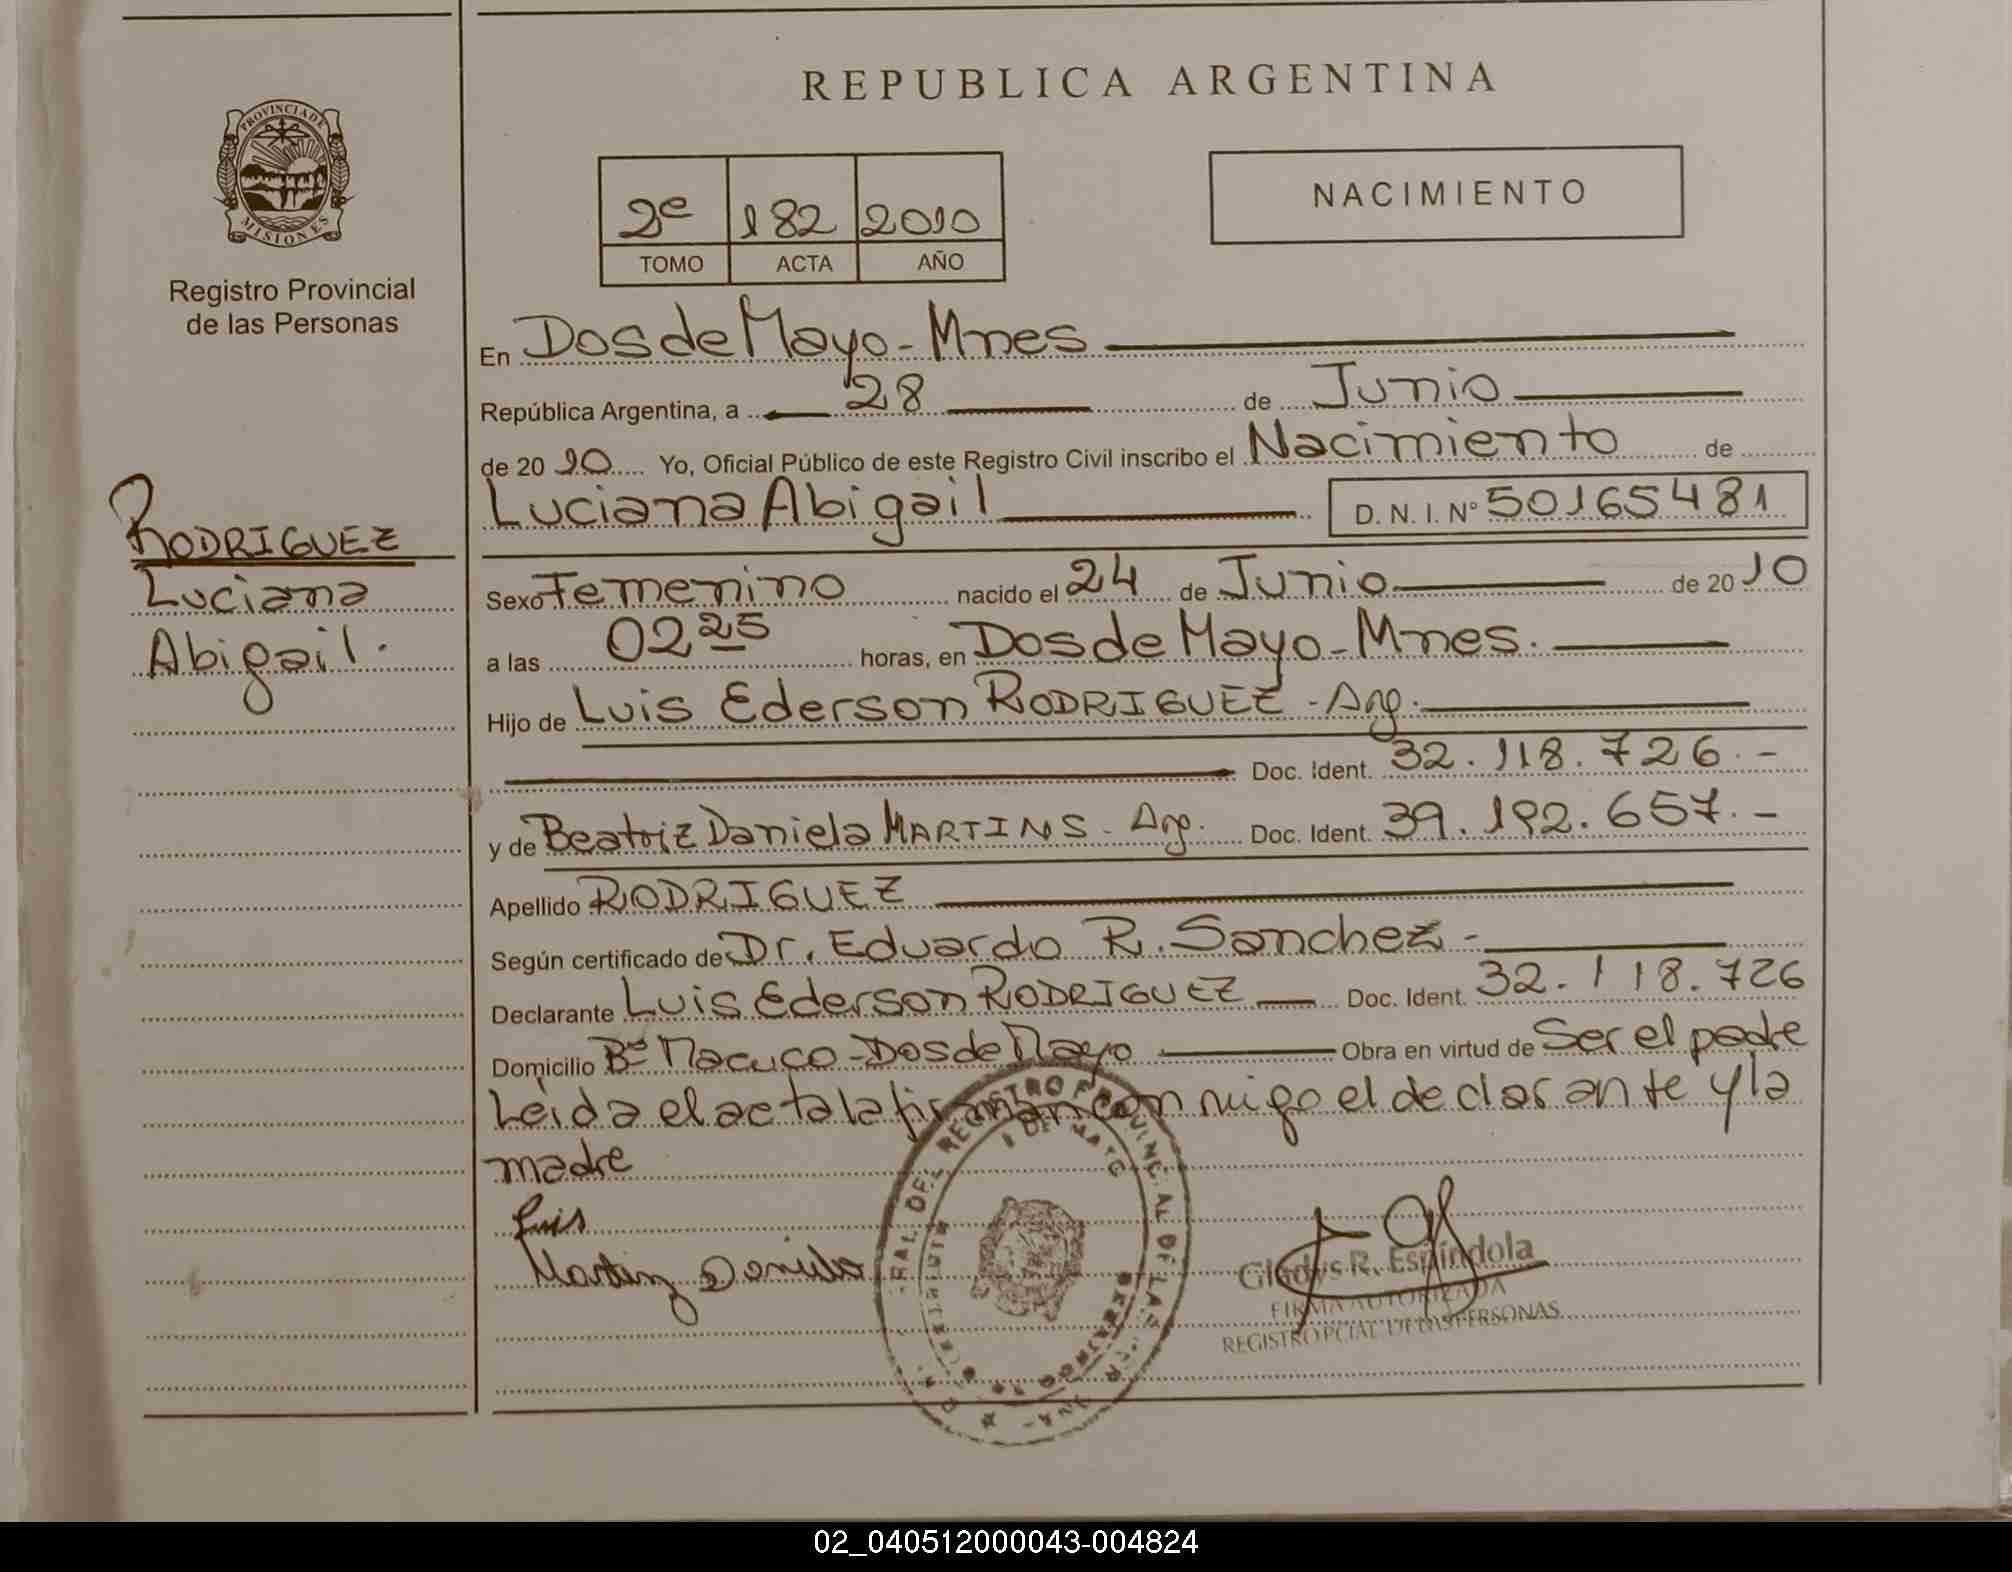 REPUBLICA ARGENTINA
PROVINCIA DE
MISIONES
Registro Provincial
de las Personas
2º 182 2010
TOMO ACTA AÑO
NACIMIENTO
RODRIGUEZ
Luciana
Abigail.
En Dos de Mayo - Mnes
República Argentina, a 28 de Junio
de 20 10 Yo, Oficial Público de este Registro Civil inscribo el Nacimiento de
Luciana Abigail D. N. I. Nº 50165481
Sexo Femenino nacido el 24 de Junio de 20 10
a las 02 25 horas, en Dos de Mayo - Mnes.
Hijo de Luis Ederson RODRIGUEZ - Arg.
Doc. Ident. 32.118.726.-
y de Beatriz Daniela MARTINS - Arg. Doc. Ident. 39.192.657.-
Apellido RODRIGUEZ
Según certificado de Dr. Eduardo R. Sanchez -
Declarante Luis Ederson RODRIGUEZ Doc. Ident. 32.118.726
Domicilio Bº Macuco - Dos de Mayo Obra en virtud de Ser el padre
Leida el acta la firman conmigo el declarante y la
madre
Luis
Gladys R. Espíndola
FIRMA AUTORIZADA
REGISTRO PCIAL DE LAS PERSONAS
02_040512000043-004824